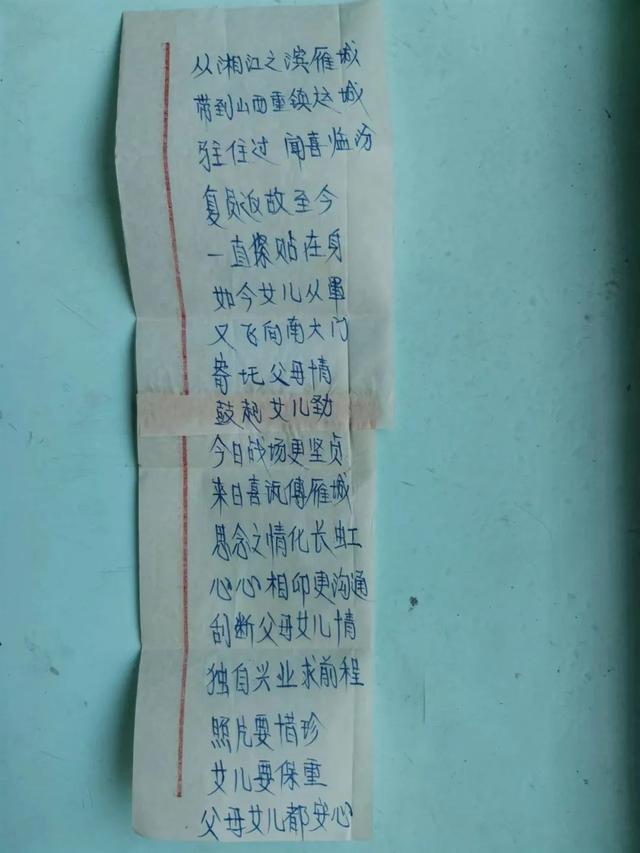 从湘江之滨雁城
带到山西重镇赵城
驻住过 闻喜临汾
复员返故至今
一直探贴在身
如今女儿从军
又飞向南大门
寄托父母情
鼓起女儿劲
今日战场更坚贞
来日喜讯傅雁城
思念之情化长虹
心心相印更沟通
刮断父母女儿情
独自兴业求前程
照片要惜珍
女儿要保重
父母女儿都安心